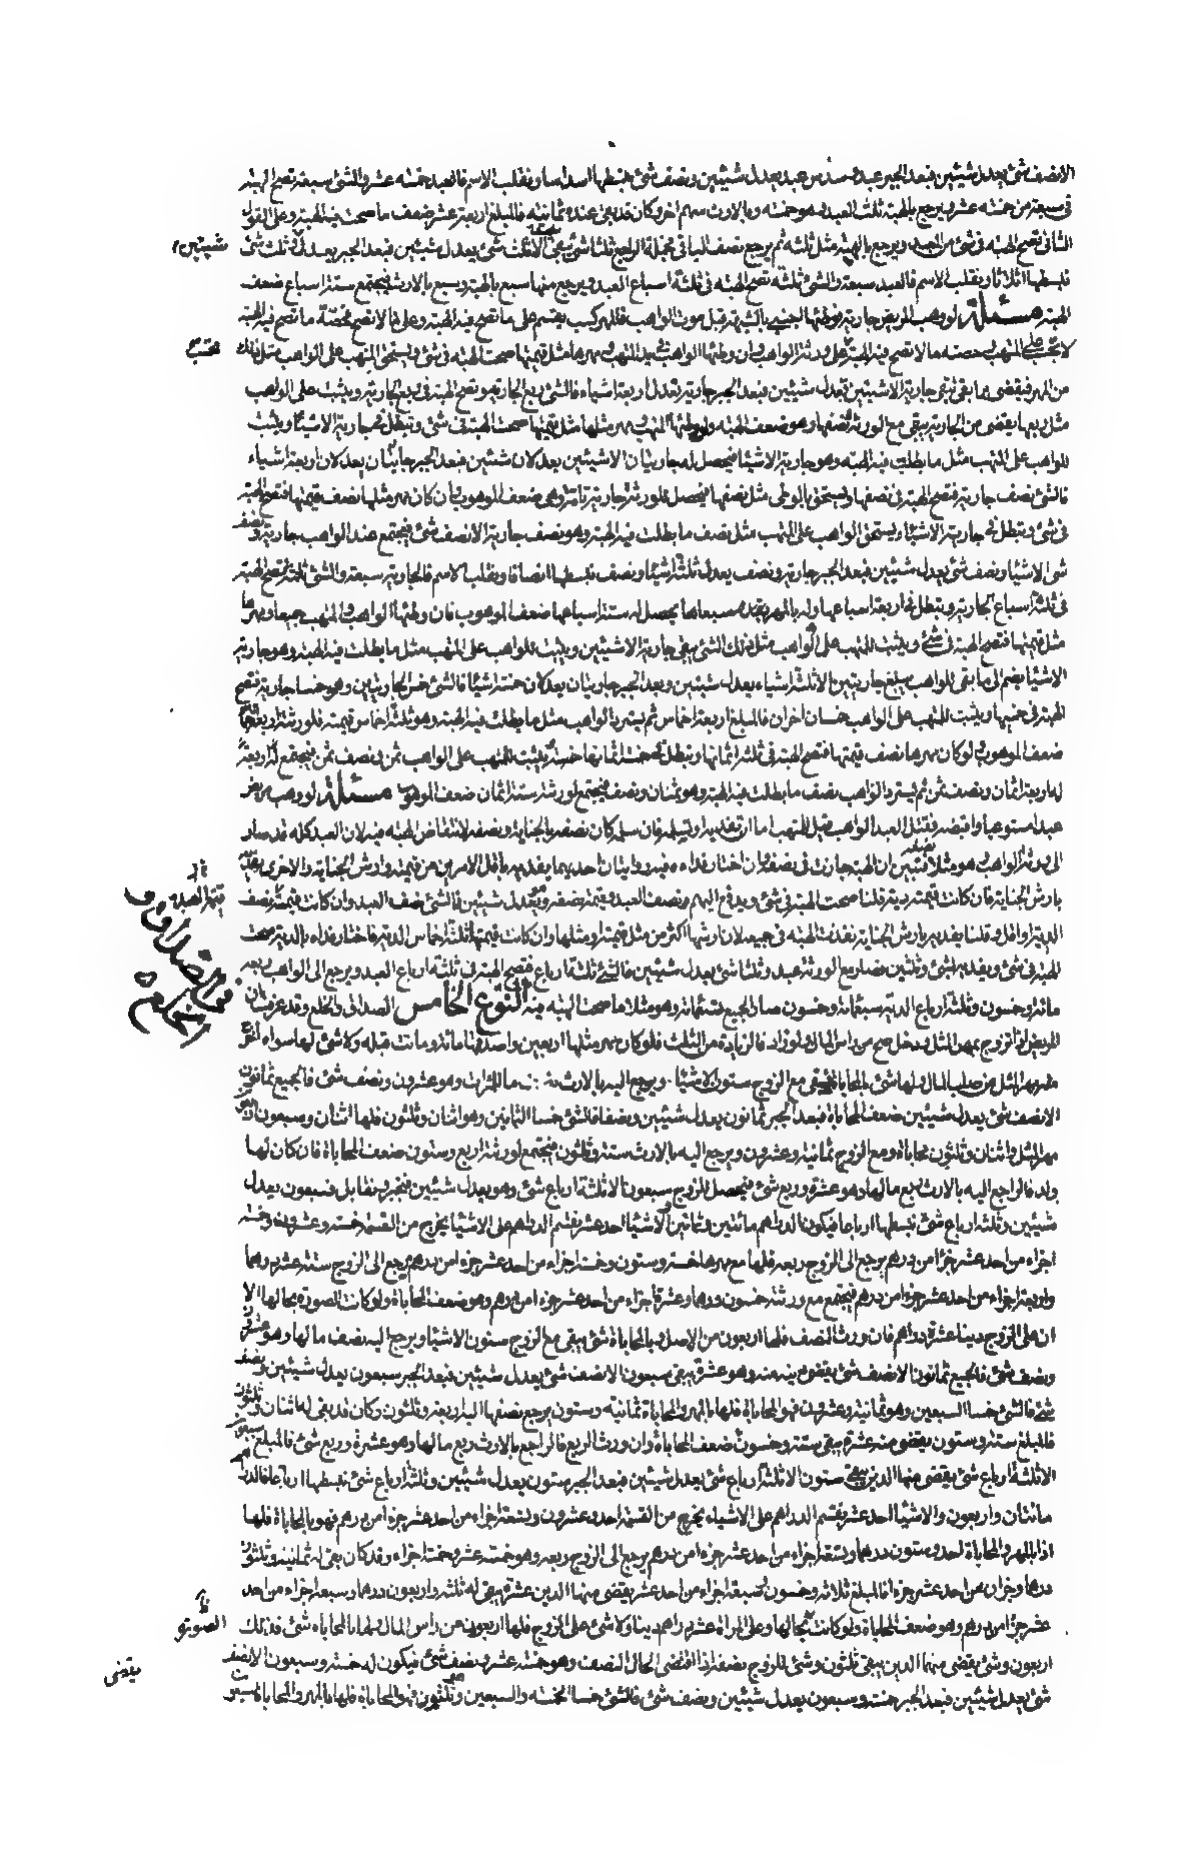 الا نصف شئ يعدل شيئين فبعد الجبر عبد وسدس عبد يعدل شيئين ونصف شئ فابسطها اسداسا ونقلب الاسم فالعبد خمسة عشر والشئ سبعة تصح الهبة
في سبعة من خمسة عشر ويرجع بالهبة ثلث العبد وهو خمسة وبالارث سهم اخر وكان قد بقي عنده ثمانية فالمبلغ اربعة عشر ضعف ما صحت فيه الهبة وعلى القول
الثاني تصح الهبة في شئ من العبد ويرجع بالهبة مثل ثلثه ثم يرجع نصف الباقي فجملة الراجع ثلثا شئ يبقى الا ثلث شئ يعدل شيئين فبعد الجبر يعدل ثلث شئ
شيئين
فابسطها اثلاثا ونقلب الاسم فالعبد سبعة والشئ ثلثة تصح الهبة في ثلثة اسباع العبد ويرجع منها سبع بالهبة وسبع بالارث فيجتمع ستة اسباع ضعف
الهبة مسئلة لو وهب المريض جارية فوطئها اجنبي بالشبهة قبل موت الواهب فالمهر كسب يقسم على ما تصح فيه الهبة وعلى ما لا تصح فحصة ما تصح فيه الهبة
لا تحتسب على المتهب وحصة ما لا تصح فيه الهبة على ورثة الواهب وان وطئها الواهب في يد المتهب ومهرها مثل قيمتها صحت الهبة في شئ ويستحق المتهب على الواهب مثل ذلك
تحتسب
من المهر فيقضى مما بقي تبقى جارية الا شيئين تعدل شيئين فبعد الجبر جارية تعدل اربعة اشياء فالشئ ربع الجارية وتصح الهبة في ربع الجارية ويثبت على الواهب
مثل ربعها يقضى من الجارية يبقى مع الورثة نصفها وهو ضعف الهبة ولو وطئها المتهب ومهر مثلها مثل قيمتها صحت الهبة في شئ وتبطل في جارية الا شيئا ويثبت
للواهب على المتهب مثل ما بطلت فيه الهبة وهو جارية الا شيئا فيحصل له جاريتان الا شيئين يعدلان شيئين فبعد الجبر جاريتان يعدلان اربعة اشياء
فالشئ نصف جارية فتصح الهبة في نصفها ويستحق بالوطي مثل نصفها فيحصل للورثة جارية تامة وهي ضعف الموهوب فان كان مهر مثلها نصف قيمتها فتصح الهبة
في شئ وتبطل في جارية الا شيئا ويستحق الواهب على المتهب مثل نصف ما بطلت فيه الهبة وهو نصف جارية الا نصف شئ فيجتمع عند الواهب جارية ونصف
شئ الا شيئا ونصف شئ يعدل شيئين فبعد الجبر جارية ونصف يعدل ثلثة اشيا ونصف فابسطها انصافا ونقلب الاسم فالجارية سبعة والشئ ثلثة تصح الهبة
في ثلثة اسباع الجارية وتبطل في اربعة اسباعها وله بالمهر سبعاها يحصل له ستة اسباعها ضعف الموهوب فان وطئها الواهب والمتهب جميعا ومهرها
مثل قيمتها فتصح الهبة في شئ ويثبت للمتهب على الواهب مثل ذلك الشئ يبقى جارية الا شيئين ويثبت للواهب على المتهب مثل ما بطلت فيه الهبة وهو جارية
الا شيئا يضم الى ما بقي للواهب يبلغ جاريتين الا ثلثة اشياء يعدل شيئين وبعد الجبر جاريتان يعدلان خمسة اشيا فالشئ خمس الجاريتين وهو خمسا جارية فتصح
الهبة في خمسيها ويثبت للمتهب على الواهب خمسان اخران فالمبلغ اربعة اخماس ثم يسترد الواهب مثل ما بطلت فيه الهبة وهو ثلثة اخماس قيمته فلورثته اربعة اخماسها
ضعف الموهوب ولو كان مهرها نصف قيمتها فتصح الهبة في ثلثة اثمانها وتبطل في خمسة اثمانها ويثبت للمتهب على الواهب ثمن ونصف ثمن فيجتمع له اربعة
لها اربعة اثمان ونصف ثمن ثم يسترد الواهب نصف ما بطلت فيه الهبة وهو ثمنان ونصف فيجتمع لورثته ستة اثمان ضعف الموهوب مسئلة لو وهب مريض
عبدا مستوعبا واقبضه فقتل العبد الواهب قيل للمتهب اما ان تفديه او تسلمه فان سلمه كان نصفه بالجناية ونصفه لانتقاض الهبة فيه لان العبد كله قد صار
الى ورثة الواهب وهو مثلا نصفه فتبين ان الهبة جازت في نصفه وان اختار فداءه ففيه روايتان احديهما يفديه باقل الامرين من قيمته وارش الجناية والاخرى يفديه
بارش الجناية فان كانت قيمته دية قلنا صحت الهبة في شئ ويدفع اليهم نصف العبد وقيمة نصفه ويعدل شيئين فالشئ نصف العبد وان كانت قيمته نصف
قيمة العبد
الدية او اقل وقلنا يفديه بارش الجناية نفذت الهبة في جميعه لان ارشها اكثر من مثلي قيمته او مثلها وان كانت قيمتها ثلثة اخماس الدية فاختار فداه بالدية صحت
الهبة في شئ ويفديه بشئ وثلثين فصار مع الورثة عبد وثلثا شئ يعدل شيئين فالشئ ثلثة ارباع فتصح الهبة في ثلثة ارباع العبد ويرجع الى الواهب ربعه
في الصداق والخلع
مائة وخمسون وثلثة ارباع الدية سبعمائة وخمسون صار الجميع تسعمائة وهو مثلا ما صحت الهبة فيه النوع الخامس الصداق والخلع وقد عرفت ان
المريض اذا تزوج بمهر المثل ودخل صح من راس المال ولو زاد فالزيادة من الثلث فلو كان مهر مثلها اربعين واصدقها مائة وماتت قبله ولا شئ لها سواه
فلها مهر المثل من صلب المال ولها شئ بالمحاباة يبقى مع الزوج ستون الا شيئا ويرجع اليه بالارث نصف مالها وهو عشرون ونصف شئ فالجميع ثمانون
الا نصف شئ يعدل شيئين ضعف المحاباة فبعد الجبر ثمانون يعدل شيئين ونصفا فالشئ خمسا الثمانين وهو اثنان وثلثون فلها اثنان وسبعون
مهر المثل واثنان وثلثون محاباة ومع الزوج ثمانية وعشرون ويرجع اليه بالارث ستة وثلثون فيجتمع لورثته اربع وستون ضعف المحاباة فان كان لها
ولد فالراجع اليه بالارث ربع مالها وهو عشرة وربع شئ فيحصل للزوج سبعون الا ثلثة ارباع شئ وهو يعدل شيئين فنجبر ونقابل فسبعون يعدل
شيئين وثلثة ارباع شئ نبسطها ارباعا فيكون الدراهم مائتين وثمانين والاشيا احد عشر نقسم الدراهم على الاشيا يخرج من القسمة خمسة وعشرون وخمسة
اجزاء من احد عشر جزء من درهم يرجع الى الزوج ربعه فلها مع مهرها خمسة وستون وخمسة اجزاء من احد عشر جزء من درهم يرجع الى الزوج ستة عشر درهما
واربعة اجزاء من احد عشر جزء من درهم فيجتمع مع ورثته خمسون درهما وعشرة اجزاء من احد عشر جزء من درهم وهو ضعف المحاباة ولو كانت الصورة بحالها الا
ان على الزوج دينا عشرة دراهم فان ورث النصف فلها اربعون من الاصل وبالمحاباة شئ يبقى مع الزوج ستون الا شيئا ويرجع اليه نصف مالها وهو عشرون
ونصف شئ فالجميع ثمانون الا نصف شئ يقضى دينه منه وهو عشرة يبقى سبعون الا نصف شئ يعدل شيئين فبعد الجبر سبعون يعدل شيئين ونصف
شئ فالشئ خمسا السبعين وهو ثمانية وعشرون فهو المحاباة فلها بالمهر والمحاباة ثمانية وستون يرجع نصفها اليه اربعة وثلثون وكان قد بقي له اثنان وثلثون
فالمبلغ ستة وستون يقضى منه عشرة يبقى ستة وخمسون ضعف المحاباة وان ورث الربع فالراجع بالارث ربع مالها وهو عشرة وربع شئ فالمبلغ سبعون
الا ثلثة ارباع شئ يقضى منها الدين يبقى ستون الا ثلثة ارباع شئ يعدل شيئين فبعد الجبر ستون يعدل شيئين وثلثة ارباع شئ نبسطها ارباعا فالدراهم
مائتان واربعون والاشيا احد عشر نقسم الدراهم على الاشياء يخرج من القسمة احد وعشرون وتسعة اجزاء من احد عشر جزء من درهم فهو بالمحاباة فلها
اذا بالمهر والمحاباة احد وستون درهما وتسعة اجزاء من احد عشر جزء من درهم يرجع الى الزوج ربعه وهو خمسة عشر وخمسة اجزاء وقد كان بقي له ثمانية وثلثون
درهما وجزان من احد عشر جزء فالمبلغ ثلاثة وخمسون وسبعة اجزاء من احد عشر يقضى منها الدين عشرة يبقى له ثلثة واربعون درهما وسبعة اجزاء من احد
عشر جزء من درهم وهو ضعف المحاباة ولو كانت بحالها وعلى المراة عشرة دراهم دينا ولا شئ على الزوج فلها اربعون من راس المال ولها بالمحاباة شئ فذلك
الصورة
اربعون وشئ يقضى منها الدين يبقى ثلثون وشئ للزوج نصفه اذا اقتضى الحال النصف وهو خمسة عشر ونصف شئ فيكون له خمسة وسبعون الا نصف
يقضى
شئ يعدل شيئين فبعد الجبر خمسة وسبعون يعدل شيئين ونصف شئ فالشئ خمسا الخمسة والسبعين وثلثون فهو المحاباة فلها بالمهر والمحاباة سبعون